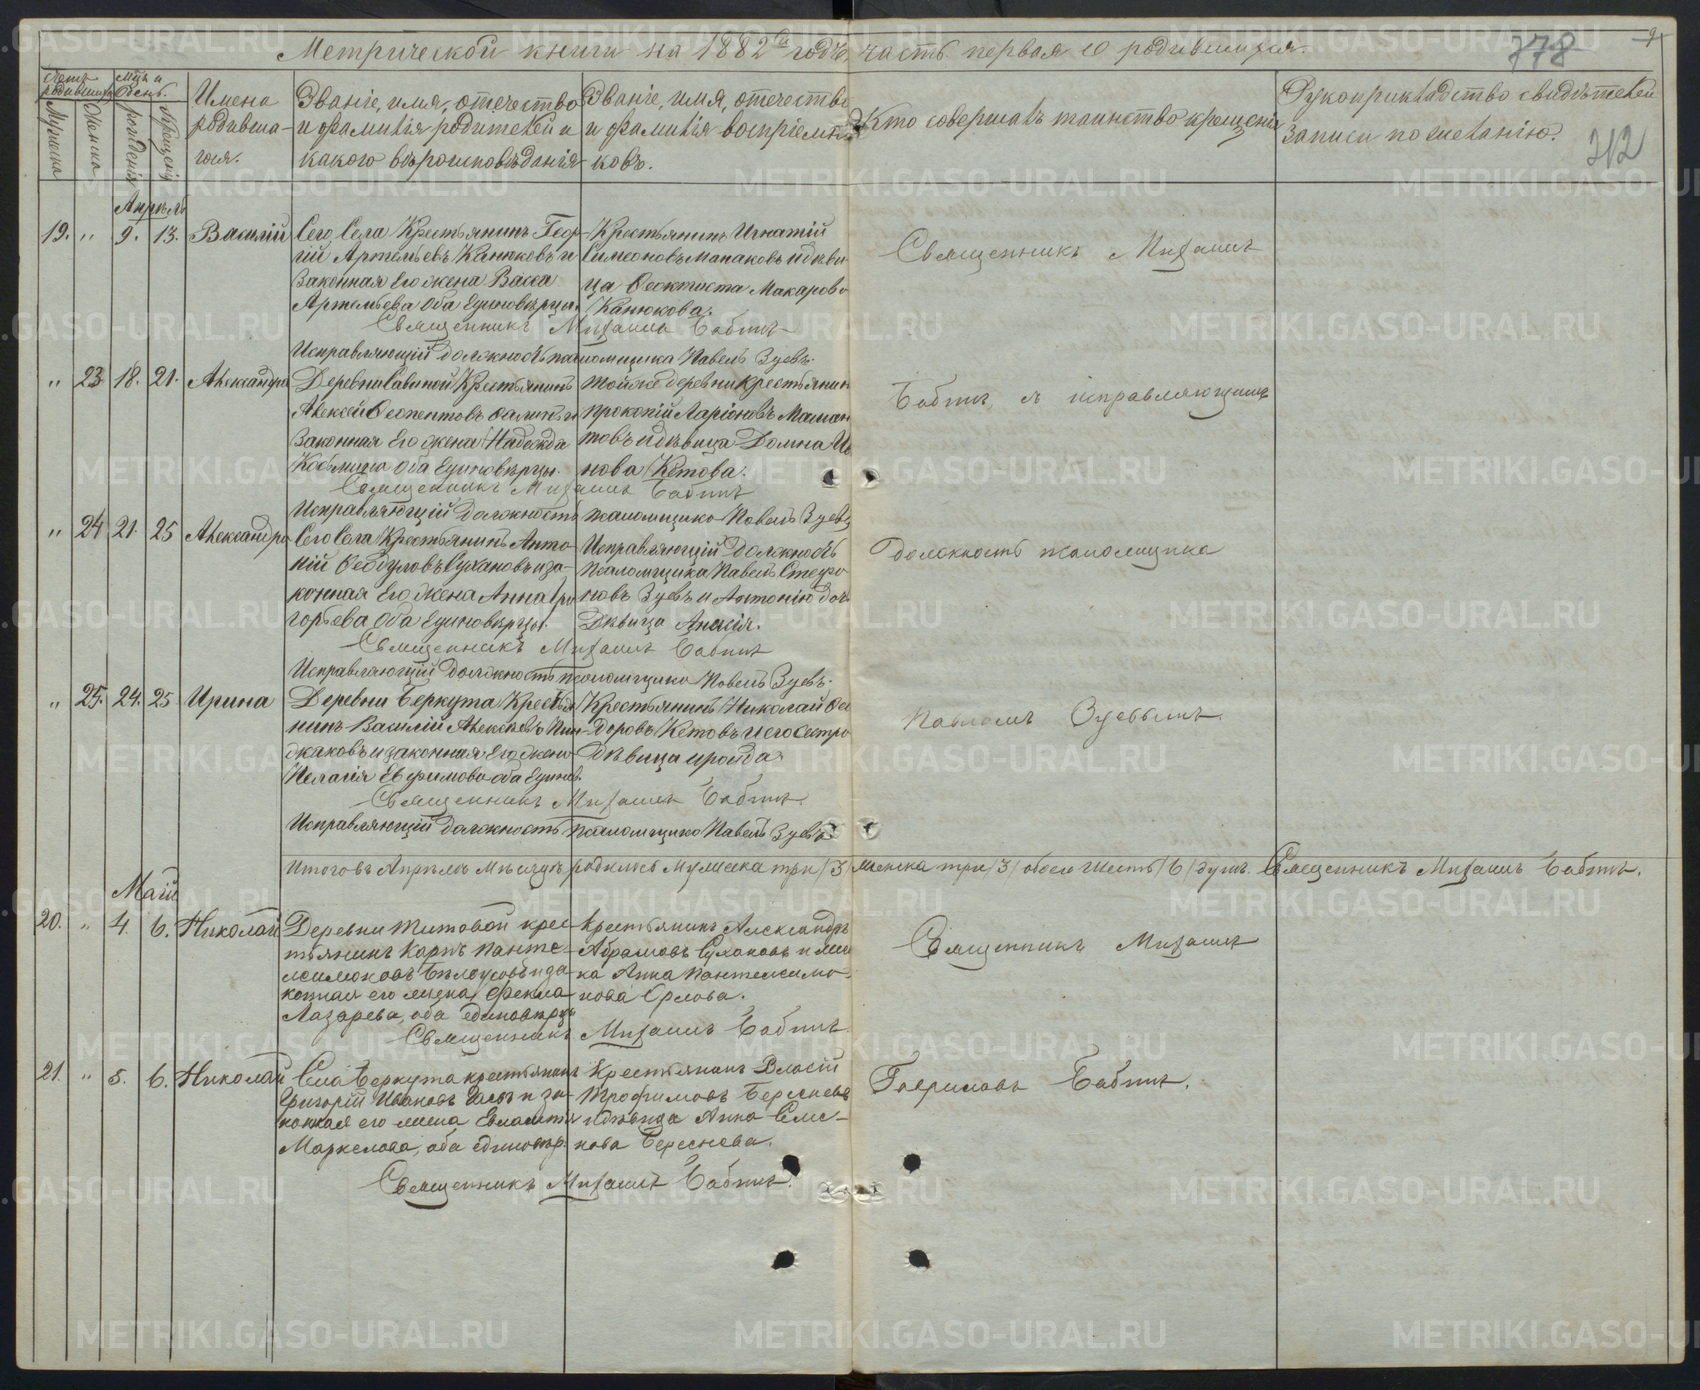 Метрической книги на 1882й годъ, часть первая о родившихся.
778
212
Счетъ родившихся
Мужеска
Женска
Мѣсяцъ и день.
рожденія
крещенія
Имена родивша-
гося.
Званіе, имя, отечество
и фамилія родителей и
какого вѣроисповѣданія
Званіе, имя, отечество
и фамилія воспріемни-
ковъ.
Кто совершалъ таинство крещенія
Рукоприкладство свидѣтелей
записи по желанію.
Апрѣль
19. " 9. 13. Василій
Сего Села Крестьянинъ Геор-
гій Артемьевъ Канюковъ и
Законная Его жена Васса
Артемьева оба Единовѣрцы.
Крестьянинъ Игнатій
Симеоновъ Мапаковъ и дѣви-
ца Феоктиста Макарова
Канюкова.
Священникъ Михаилъ
Священникъ Михаилъ Бабинъ
Исправляющій должность псаломщика Павелъ Зуевъ.
" 23 18. 21. Александра
Деревни Савиной Крестьянинъ
Алексей
Законная Его жена Надежда
Козмина оба Единовѣрцы.
Той же деревни крестьянин
Прокопій Ларіоновъ
и дѣвица Домна
нова Кетова.
Бабинъ, и исправляющимъ
Священникъ Михаилъ Бабинъ
Исправляющій Должность псаломщика Павелъ Зуевъ
" 24 21. 25 Александра
Сего Села Крестьянинъ Анто-
ній Федуловъ Сухановъ и за-
конная Его жена Анна Гри
горьева оба Единовѣрцы.
Исправляющій Должность
Псаломщика Павелъ Стефа
новъ Зуевъ и Антонію доч
Дѣвица Анисія.
должность псаломщика
Священникъ Михаилъ Бабинъ
Исправляющій должность псаломщика Павелъ Зуевъ.
" 25. 24. 25 Ирина
Деревни Беркута Крестья
нинъ Василій Алексѣевъ Пин-
жаковъ и законная Его жена
Пелагія Ефимова оба Единов.
Крестьянинъ Николай Фе
доровъ Кетовъ и его сестра
Дѣвица Ираида
Павломъ Зуевымъ.
Священникъ Михаилъ Бабинъ.
Исправляющій должность псаломщика Павелъ Зуевъ
Итого въ Апрѣлѣ Мѣсяцѣ родилось Мужеска три /3/ женска три /3/ обоего шесть /6/ душъ. Священникъ Михаилъ Бабинъ.
Май
20. " 4. 6. Николай
Деревни Титовой крес-
тьянинъ Карпъ Панте-
леимоновъ Бѣлоусовъ и за-
конная его жена Фекла
Лазарева, оба единовѣрцы
Крестьянинъ Александръ
Абрамовъ Сухановъ и
Анна Пантелеимо-
нова Орлова.
Священникъ Михаилъ
Священникъ Михаилъ Бабинъ.
21. " 5. 6. Николай
Села Беркута крестьянинъ
Григорій Ивановъ и за-
конная его жена
Маркелова, оба единовѣр.
Крестьянинъ Власій
Трофимовъ Бересневъ
и дѣвица Анна Семе-
нова Береснева.
Гавриловъ Бабинъ.
Священникъ Михаилъ Бабинъ.
METRIKI.GASO-URAL.RU